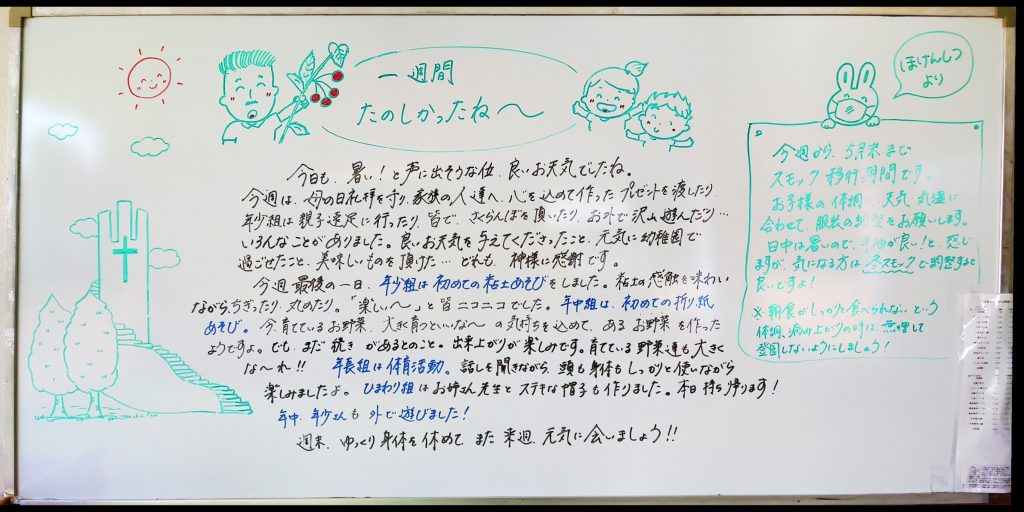 一週間
たのしかったね〜
今日も、暑い！と声に出そうな位、良いお天気でしたね。
今週は、母の日礼拝を守り、家族の人達へ、心を込めて作ったプレゼントを渡したり、
年少組は親子遠足に行ったり、皆で、さくらんぼを頂いたり、お外で沢山遊んだり…
いろんなことがありました。良いお天気を与えてくださったこと、元気に幼稚園で
過ごせたこと、美味しいものを頂けた…どれも、神様に感謝です。
今週最後の一日、年少組は初めての粘土あそびをしました。粘土の感触を味わい
ながら、ちぎったり、丸めたり。「楽しい〜」と皆ニコニコでした。年中組は、初めての折り紙
あそび。今、育てているお野菜、大きく育つといいな〜の気持ちを込めて、あるお野菜を作った
ようですよ。でも、まだ続きがあるとのこと。出来上がりが楽しみです。育てている野菜達も大きく
な〜れ!! 年長組は体育活動。話しを聞きながら、頭も身体もしっかりと使いながら
楽しみましたよ。ひまわり組はお姉さん先生とステキな帽子も作りました。本日持ち帰ります！
年中、年少さんも外で遊びました！
週末、ゆっくり身体を休めて また来週、元気に会いましょう!!
ほけんしつ
より
今週から、5月末まで
スモック移行期間です。
お子様の体調、天気、気温に
合わせて、服装の調整をお願いします。
日中は暑いので、半袖が良い！と、感じ
ますが、気になる方は冬スモックで調整すると
良いですよ！
※朝食がしっかりと食べられない、という
体調、病み上がりの時は、無理して
登園しないようにしましょう！